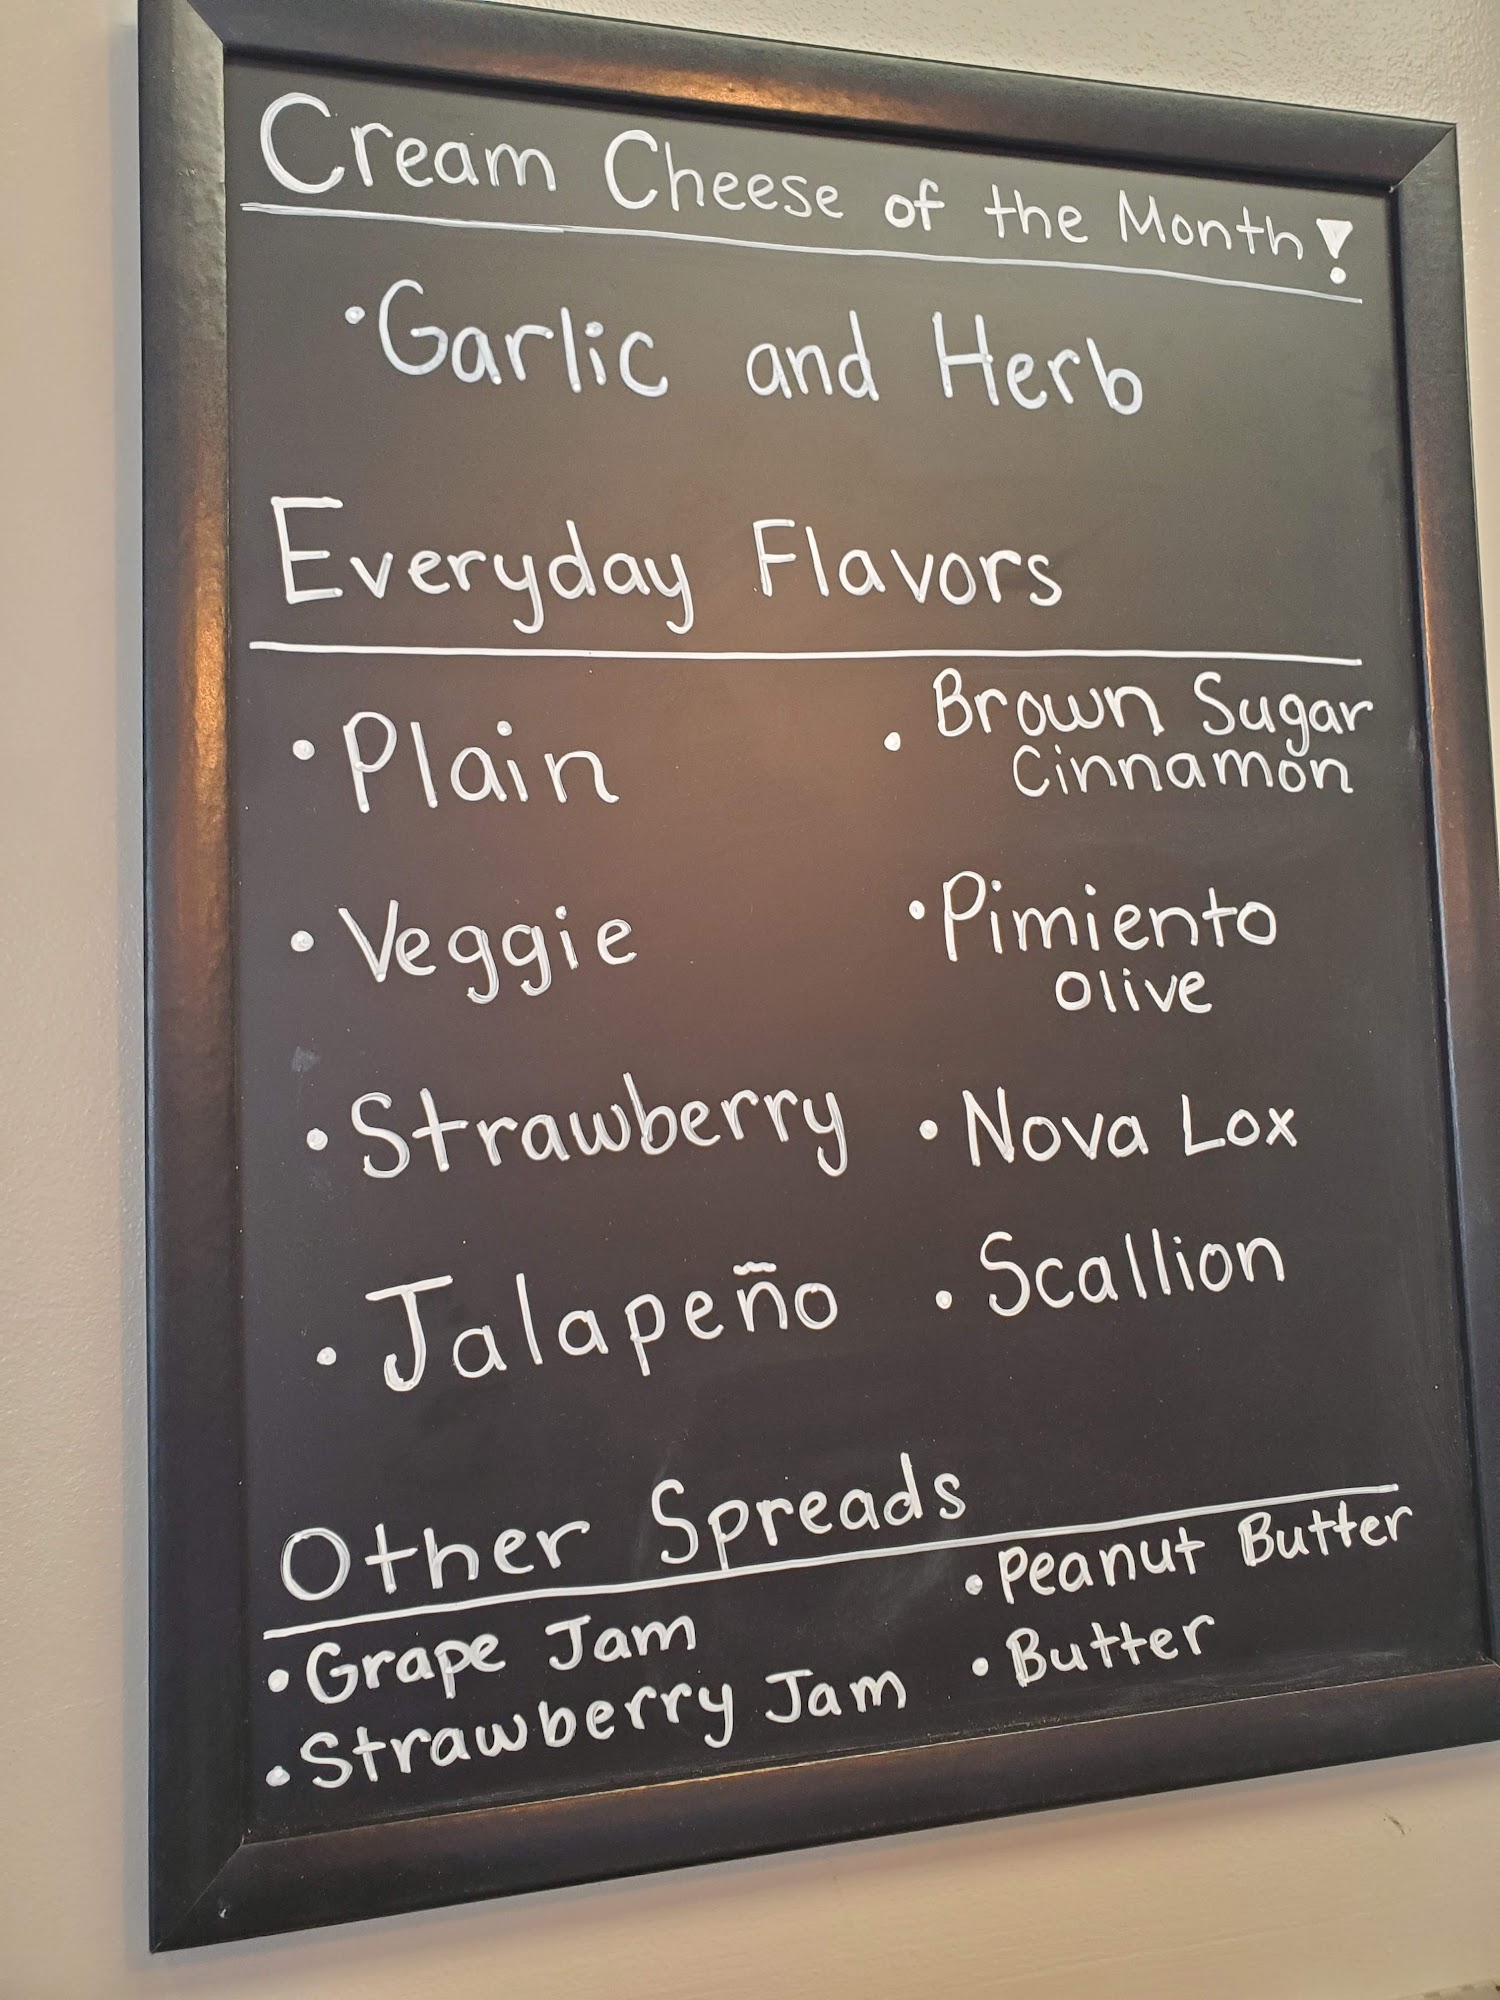 Cream Cheese of the Month!
• Garlic and Herb
Everyday Flavors
• Plain
• Veggie
• Strawberry
• Jalapeño
• Brown Sugar
Cinnamon
• Pimiento
olive
• Nova Lox
• Scallion
Other Spreads
• Grape Jam
• Strawberry Jam
• Peanut Butter
• Butter